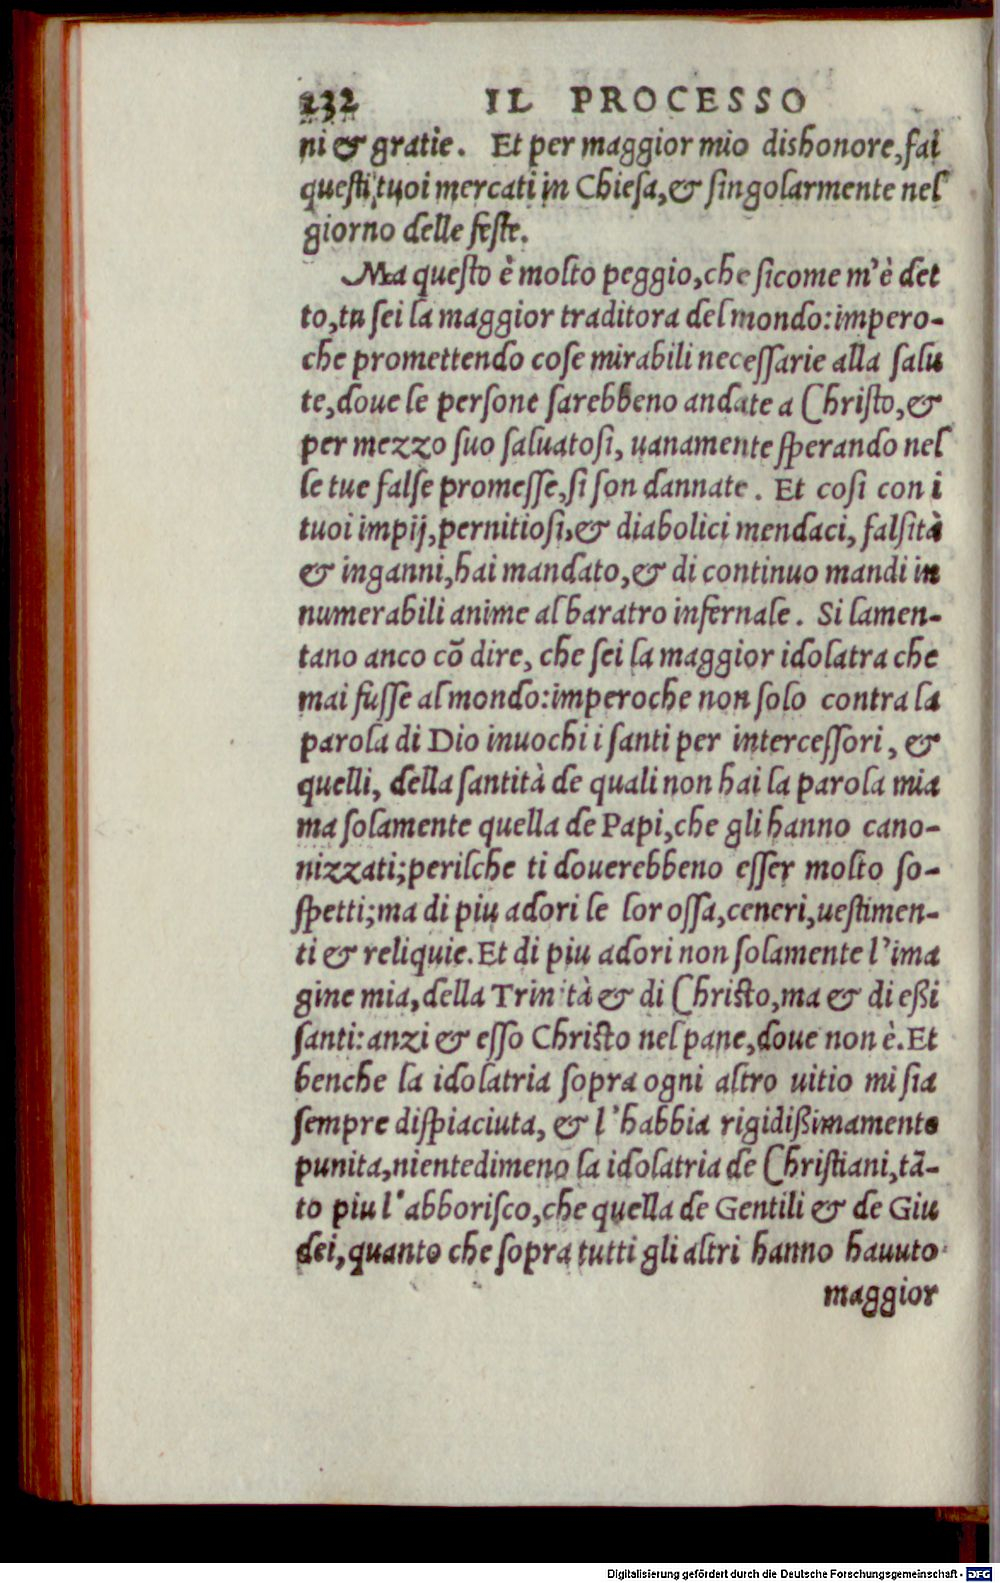 232 IL PROCESSO
ni & gratie. Et per maggior mio dishonore, fai
questi tuoi mercati in Chiesa, & singolarmente nel
giorno delle feste.
Ma questo è molto peggio, che sicome m'è det
to, tu sei la maggior traditora del mondo: impero-
che promettendo cose mirabili necessarie alla salu
te, doue le persone sarebbeno andate a Christo, &
per mezzo suo saluatosi, uanamente sperando nel
le tue false promesse, si son dannate. Et cosi con i
tuoi impij, pernitiosi, & diabolici mendaci, falsità
& inganni, hai mandato, & di continuo mandi in
numerabili anime al baratro infernale. Si lamen-
tano anco cō dire, che sei la maggior idolatra che
mai fusse al mondo: imperoche non solo contra la
parola di Dio inuochi i santi per intercessori, &
quelli, della santità de quali non hai la parola mia
ma solamente quella de Papi, che gli hanno cano-
nizzati; perilche ti douerebbeno esser molto so-
spetti; ma di piu adori le lor ossa, ceneri, uestimen-
ti & reliquie. Et di piu adori non solamente l'ima
gine mia, della Trinità & di Christo, ma & di eßi
santi: anzi & esso Christo nel pane, doue non è. Et
benche la idolatria sopra ogni altro uitio mi sia
sempre dispiaciuta, & l'habbia rigidißimamente
punita, nientedimeno la idolatria de Christiani, tā-
to piu l'abborisco, che quella de Gentili & de Giu
dei, quanto che sopra tutti gli altri hanno hauuto
maggior
Digitalisierung gefördert durch die Deutsche Forschungsgemeinschaft - DFG